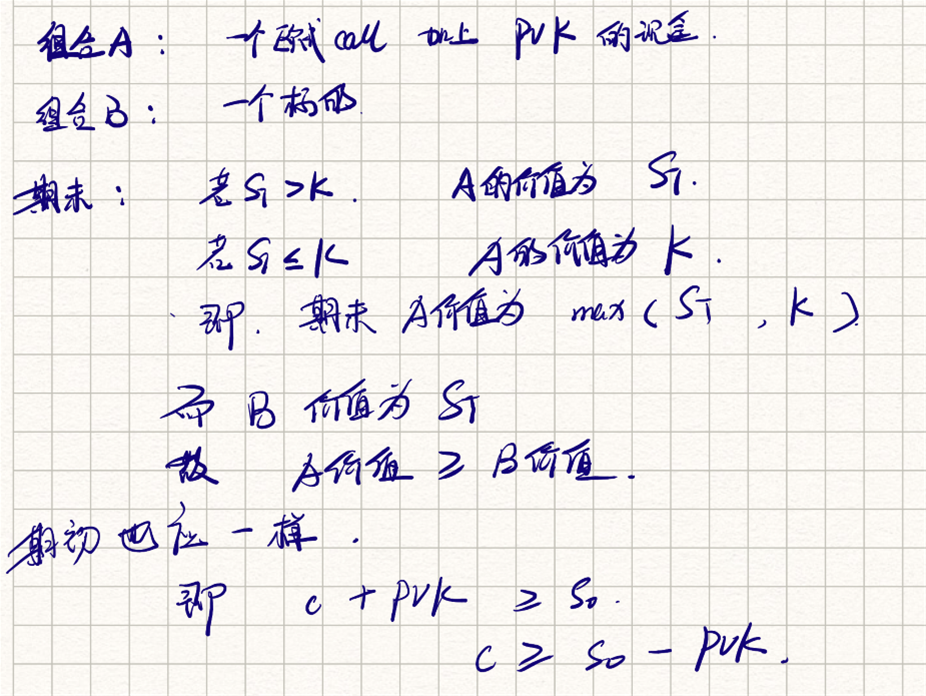 组合A: 一个欧式call 加上 PVK 的现金.
组合B: 一个标的.
期末: 若 S_T > K. A的价值为 S_T.
若 S_T ≤ K A的价值为 K.
即. 期末 A价值为 max ( S_T , K )
而 B 价值为 S_T
故 A价值 ≥ B价值.
期初也应一样.
即 c + PVK ≥ S_0.
c ≥ S_0 - PVK.